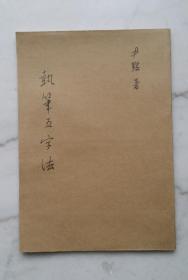 尹默著
執筆五字法